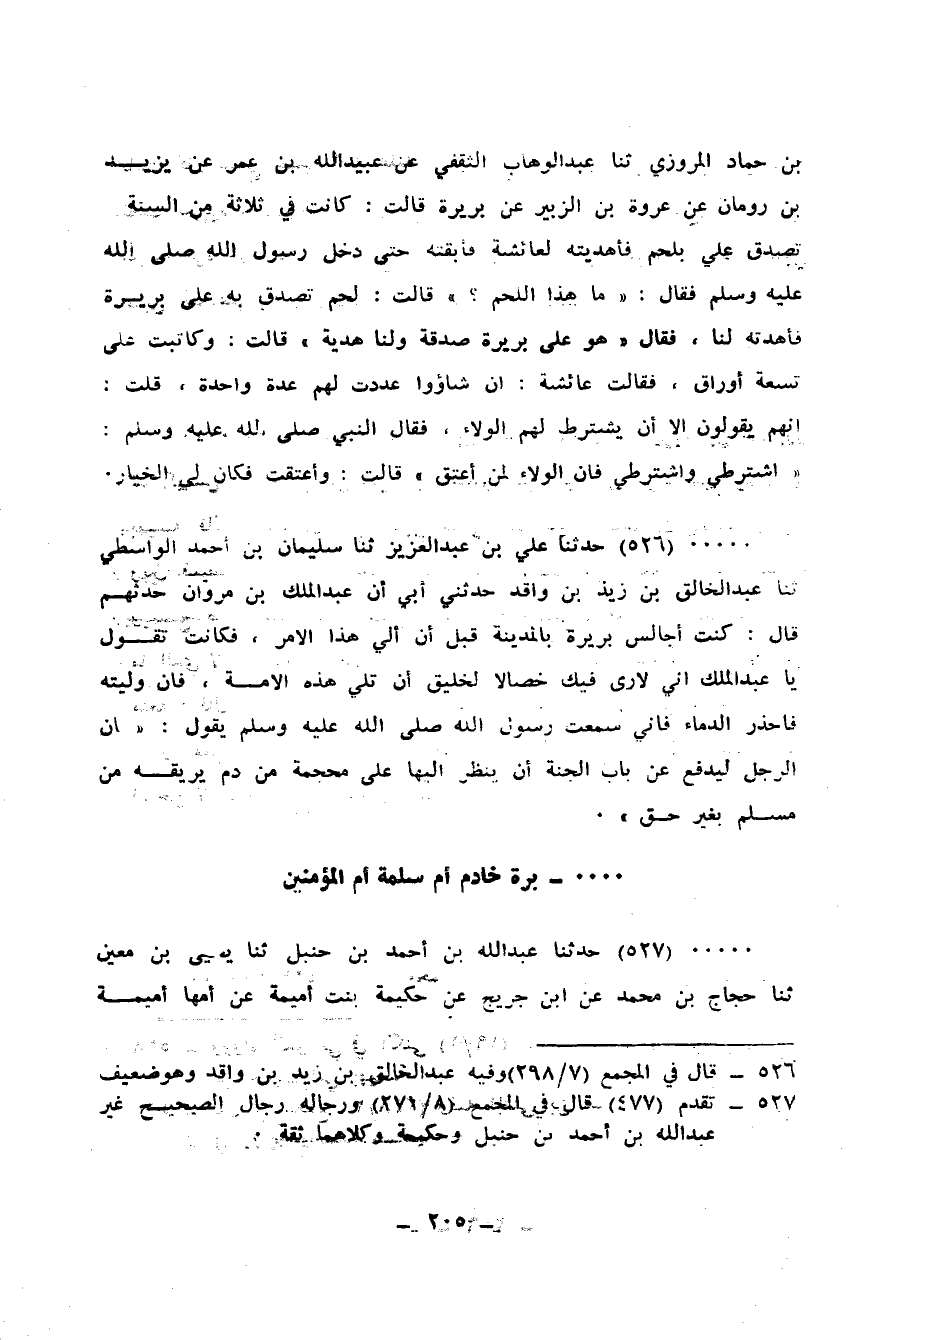 بن حماد المروزي ثنا عبدالوهاب الثقفي عن عبيدالله بن عمر عن يزيــد
بن رومان عن عروة بن الزبير عن بريرة قالت : كانت في ثلاثة من السنة
تصدق علي بلحم فأهديته لعائشة فأبقته حتى دخل رسول الله صلى الله
عليه وسلم فقال : « ما هذا اللحم ؟ » قالت : لحم تصدق به على بريرة
فأهدته لنا ، فقال « هو على بريرة صدقة ولنا هدية » قالت : وكاتبت على
تسعة أوراق ، فقالت عائشة : ان شاؤوا عددت لهم عدة واحدة ، قلت :
انهم يقولون الا أن يشترط لهم الولاء ، فقال النبي صلى الله عليه وسلم :
« اشترطي واشترطي فان الولاء لمن أعتق » قالت : وأعتقت فكان لي الخيار ٠
٠٠٠٠٠ (٥٢٦) حدثنا علي بن عبدالعزيز ثنا سليمان بن أحمد الواسطي
ثنا عبدالخالق بن زيد بن واقد حدثني أبي أن عبدالملك بن مروان حدثهــم
قال : كنت أجالس بريرة بالمدينة قبل أن ألي هذا الامر ، فكانت تقــول
يا عبدالملك اني لارى فيك خصالا لخليق أن تلي هذه الامــة ، فان وليته
فاحذر الدماء فاني سمعت رسول الله صلى الله عليه وسلم يقول : « ان
الرجل ليدفع عن باب الجنة أن ينظر اليها على محجمة من دم يريقــه من
مســلم بغير حــق » ٠
٠٠٠٠ ــ برة خادم أم سلمة أم المؤمنين
٠٠٠٠٠ (٥٢٧) حدثنا عبدالله بن أحمد بن حنبل ثنا يحيى بن معين
ثنا حجاج بن محمد عن ابن جريج عن حكيمة بنت أميمة عن أمها أميمــة
٥٢٦ ــ قال في المجمع (٢٩٨/٧)وفيه عبدالخالق بن زيد بن واقد وهوضعيف
٥٢٧ ــ تقدم (٤٧٧) قال في المجمع (٢٧١/٨) ورجاله رجال الصحيــح غير
عبدالله بن أحمد بن حنبل وحكيمة وكلاهما ثقة ٠
ــ ٢٠٥ ــ